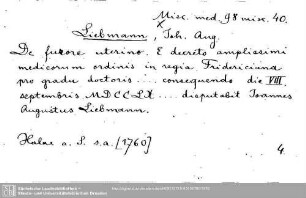 Misc. med. 98 misc. 40.
x
Liebmann, Joh. Aug.
De furore uterino. E decreto amplissimi
medicorum ordinis in regia Fridericiana
pro gradu doctoris ... consequendo die VIII.
septembris MDCCLX ... disputabit Joannes
Augustus Liebmann.
Halae a. S. s.a. [1760]
4.
Sächsische Landesbibliothek -
Staats- und Universitätsbibliothek Dresden